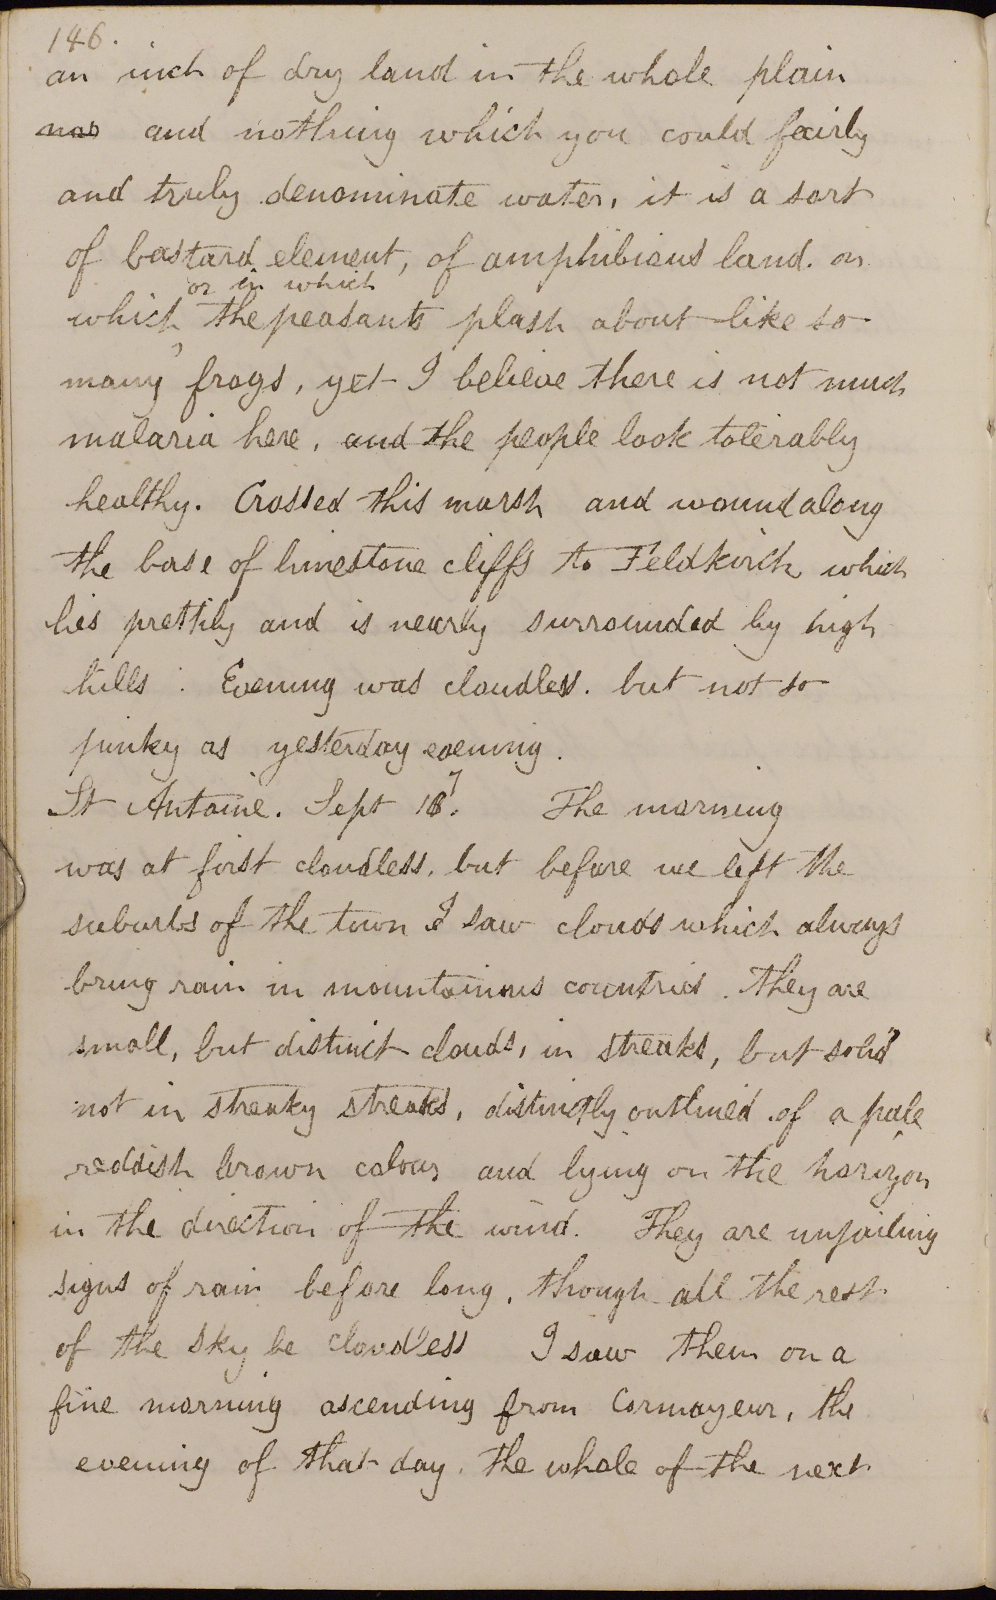 146.
an inch of dry land in the whole plain
nor and nothing which you could fairly
and truly denominate water, it is a sort
of bastard element, of amphibious land. on
or in which
which, the peasants plash about like so
many frogs, yet I believe there is not much
malaria here, and the people look tolerably
healthy. Crossed this marsh and wound along
the base of limestone cliffs to Feldkirch which
lies prettily and is nearly surrounded by high
hills. Evening was cloudless. but not so
pinky as yesterday evening.
St Antoine. Sept 17. The morning
was at first cloudless. but before we left the
suburbs of the town I saw clouds which always
bring rain in mountainous countries. They are
small, but distinct clouds, in streaks, but solid
not in streaky streaks, distinctly outlined. of a pale
reddish brown colour and lying on the horizon
in the direction of the wind. They are unfailing
signs of rain before long, though all the rest
of the sky be cloudless I saw them on a
fine morning ascending from Cormayeur, the
evening of that day. the whole of the next